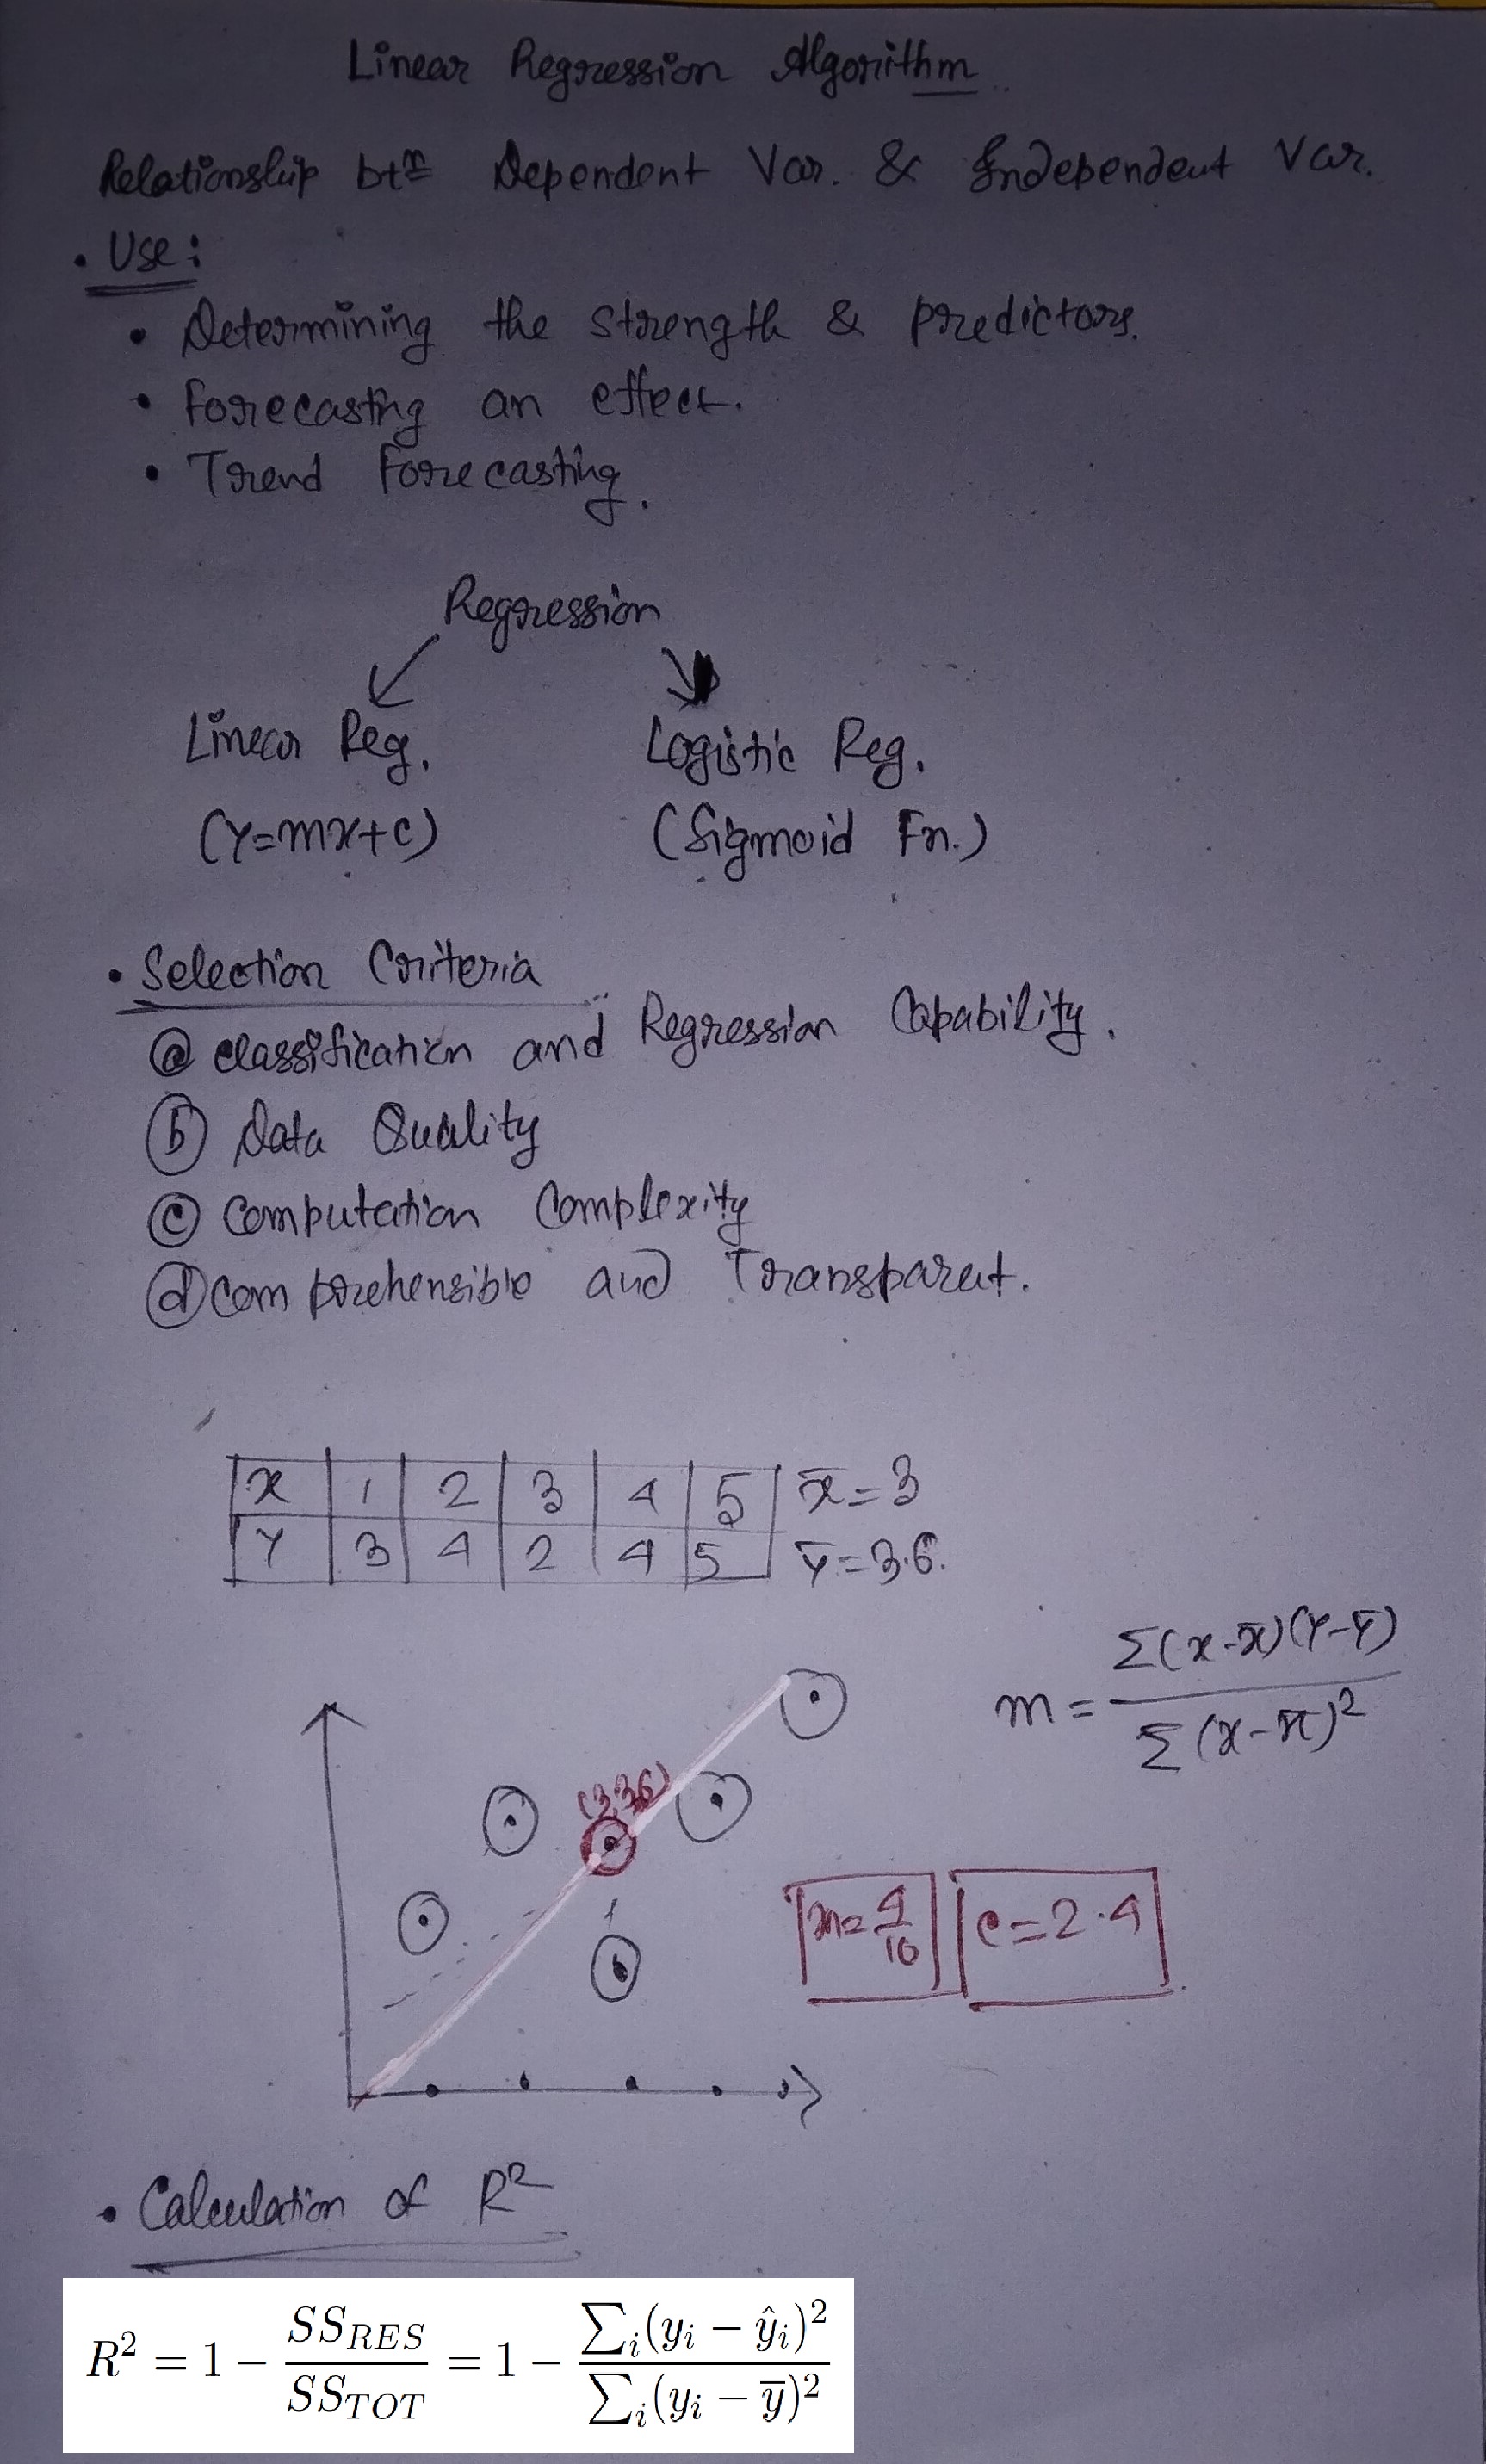 Linear Regression Algorithm
Relationship btn Dependent Var. & Independent Var.
• Use:
• Determining the strength & predictors.
• Forecasting an effect.
• Trend Forecasting.
Regression
Linear Reg. Logistic Reg.
(Y=mx+c) (Sigmoid Fn.)
• Selection Criteria
(a) classification and Regression Capability.
(b) Data Quality
(c) Computation Complexity
(d) comprehensible and Transparent.
x 1 2 3 4 5 x̄=3
Y 3 4 2 4 5 Ȳ=3.6.
m = Σ(x-x̄)(Y-Ȳ) / Σ(x-x̄)²
(3,3.6)
m=4/10 c=2.4
• Calculation of R²
R² = 1 − SS_RES / SS_TOT = 1 − ∑ᵢ(yᵢ − ŷᵢ)² / ∑ᵢ(yᵢ − ȳ)²